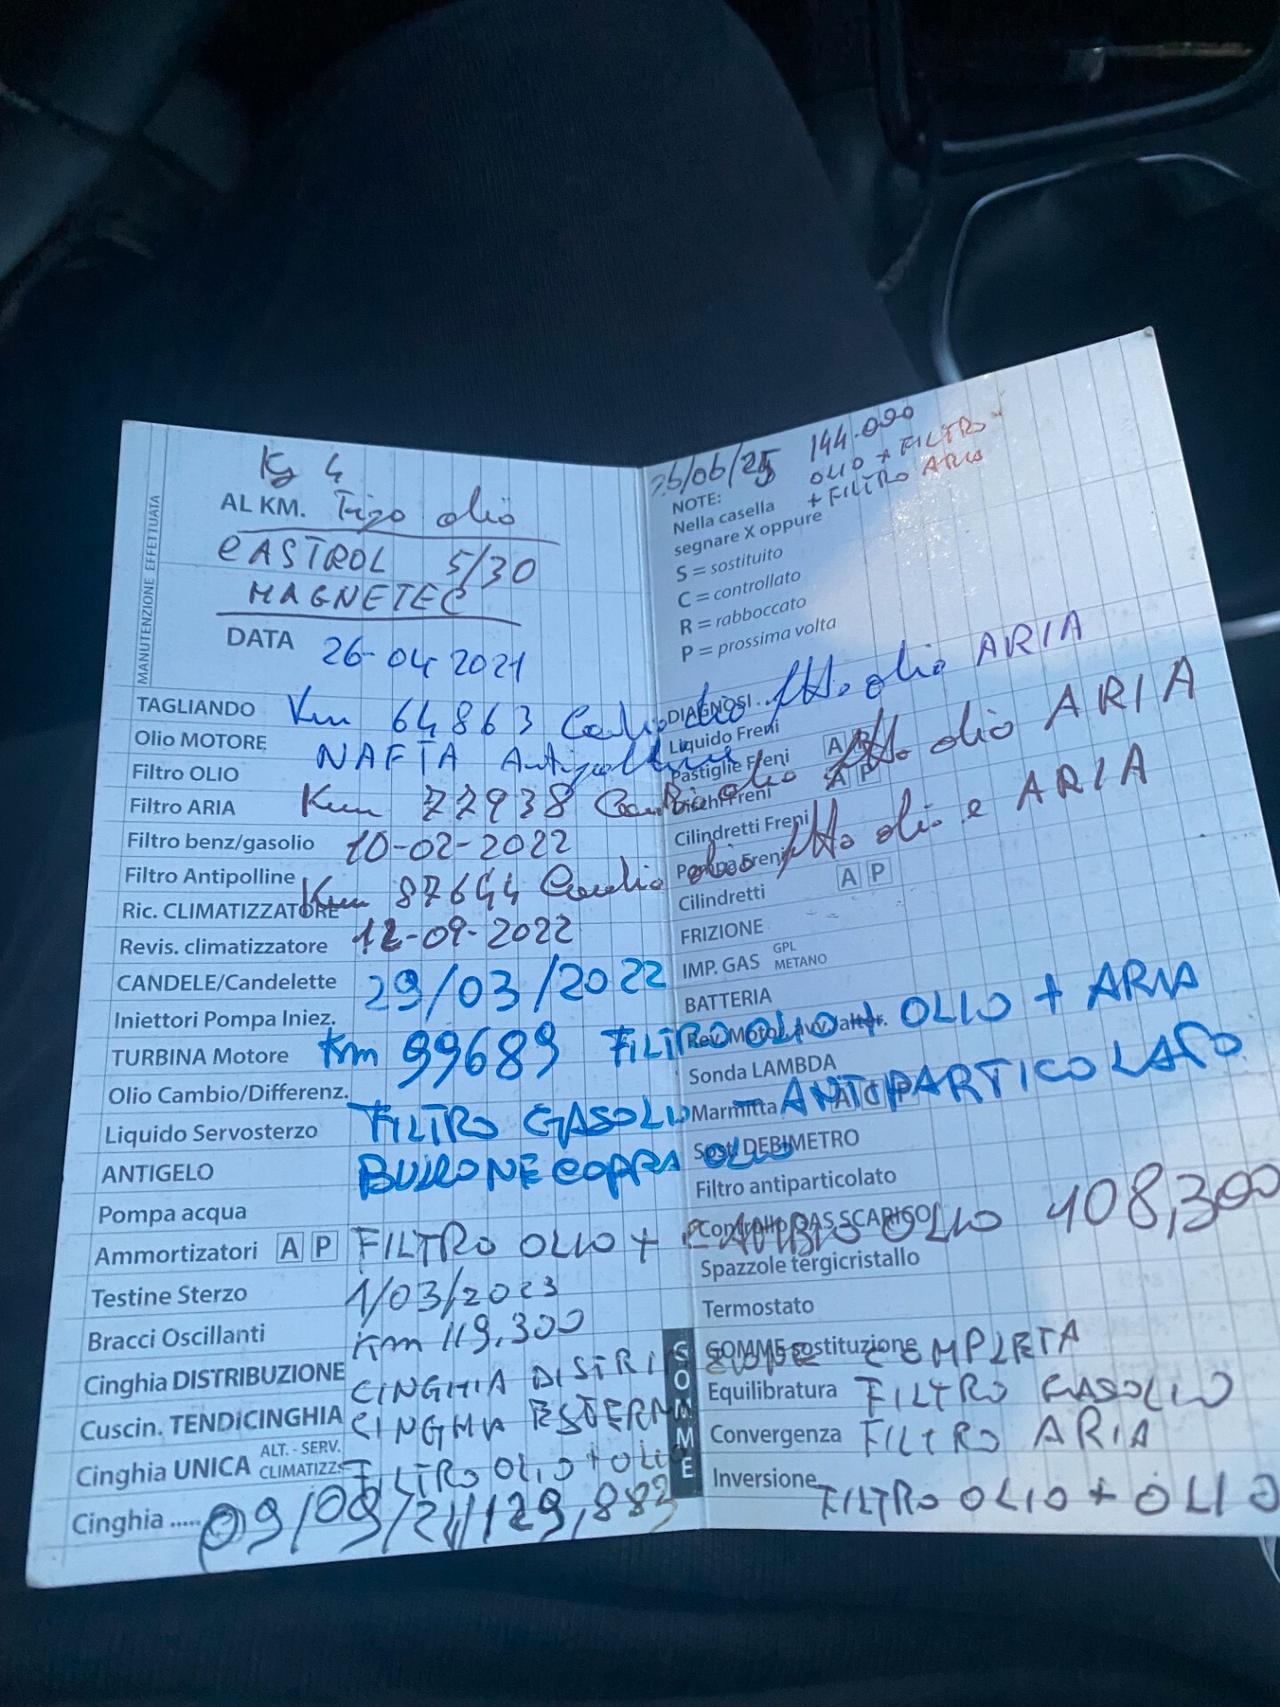 MANUTENZIONE EFFETTUATA
Kg 4
AL KM. Tipo olio
CASTROL 5/30
MAGNETEC
DATA 26-04 2021
TAGLIANDO Km 64863 Cambio olio filtto olio ARIA
Olio MOTORE NAFTA Antipolline
Filtro OLIO
Filtro ARIA Km 77938 Cambio olio filtto olio ARIA
Filtro benz/gasolio 10-02-2022
Filtro Antipolline Km 87644 Cambio olio filtto olio e ARIA
Ric. CLIMATIZZATORE
Revis. climatizzatore 12-09-2022
CANDELE/Candelette 29/03/2022
Iniettori Pompa Iniez.
TURBINA Motore Km 99689 FILTRO OLIO + OLIO + ARIA
Olio Cambio/Differenz.
Liquido Servosterzo FILTRO GASOLIO - ANTIPARTICOLATO
ANTIGELO BULLONE COPPA OLIO
Pompa acqua
Ammortizatori A P FILTRO OLIO + CAMBIO OLIO 108,300
Testine Sterzo 1/03/2023
Bracci Oscillanti Km 119,300
Cinghia DISTRIBUZIONE CINGHIA DISTRIBUZIONE COMPLETA
Cuscin. TENDICINGHIA CINGHIA ESTERNA
Cinghia UNICA ALT. - SERV. CLIMATIZZ. FILTRO OLIO + OLIO
Cinghia ..... 09/09/24 129,882
26/06/25 144.090
OLIO + FILTRO
+ FILTRO ARIA
NOTE:
Nella casella
segnare X oppure
S = sostituito
C = controllato
R = rabboccato
P = prossima volta
DIAGNOSI
Liquido Freni
Pastiglie Freni A P
Dischi Freni A P
Cilindretti Freni
Pompa Freni
Cilindretti A P
FRIZIONE
IMP. GAS GPL METANO
BATTERIA
Rev. Motor. avv./alter.
Sonda LAMBDA
Marmitta A C P
Sost. DEBIMETRO
Filtro antiparticolato
Controllo GAS SCARICO
Spazzole tergicristallo
Termostato
SOMME
GOMME sostituzione
Equilibratura FILTRO GASOLIO
Convergenza FILTRO ARIA
Inversione FILTRO OLIO + OLIO